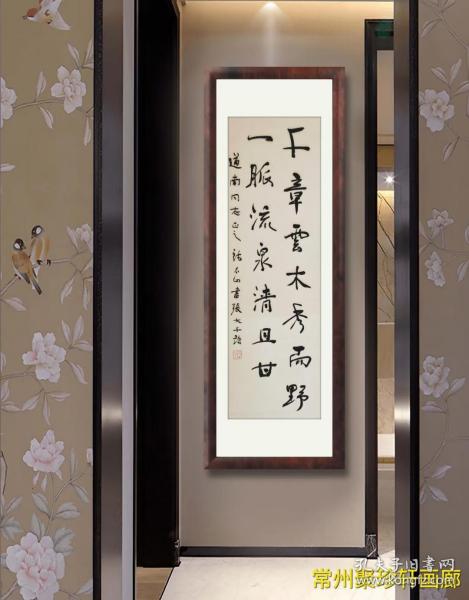 千章雲木秀而野
一脈流泉清且甘
道南同志正之 書張大千
孔夫子旧书网
常州聚珍轩画廊